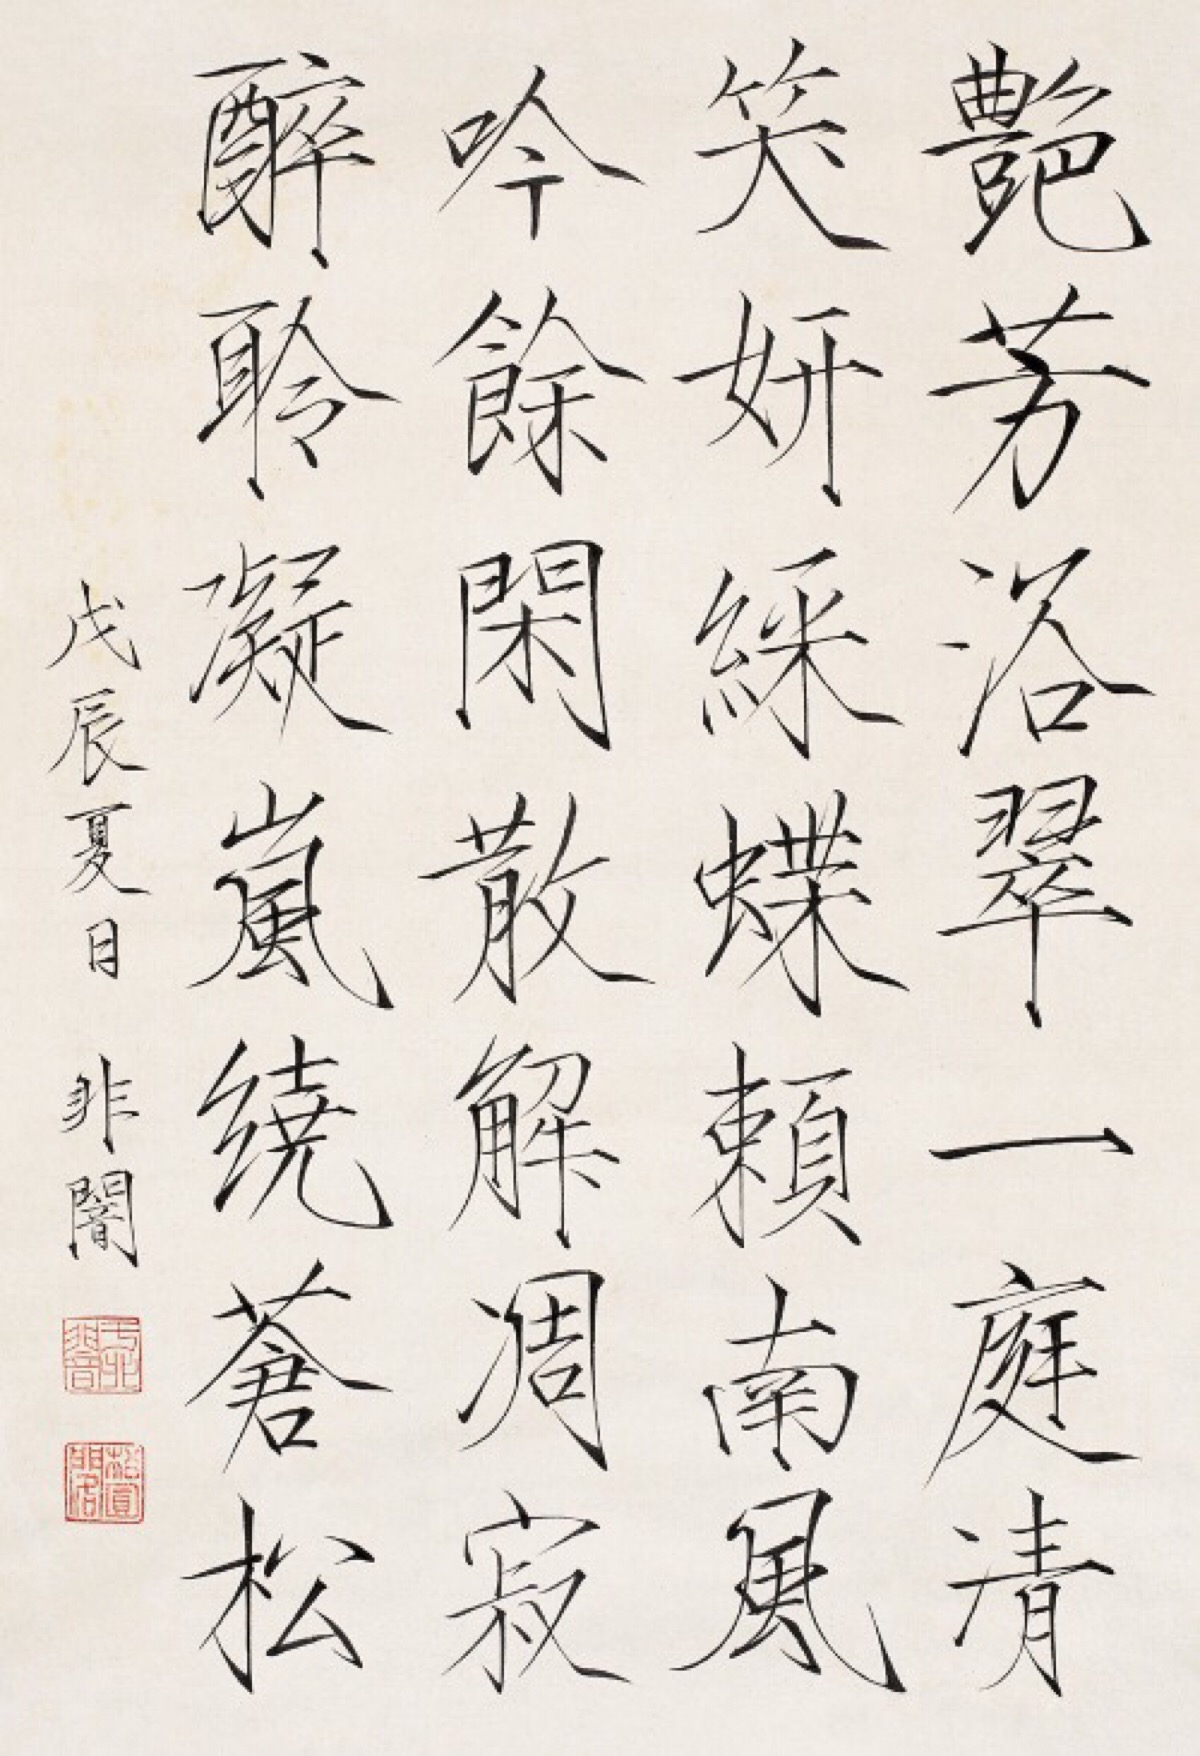 艷芳浴翠一庭清
笑妍綵蝶賴南風
吟餘閑散解凋寂
醉聆凝嵐繞蒼松
戊辰夏日 非闇